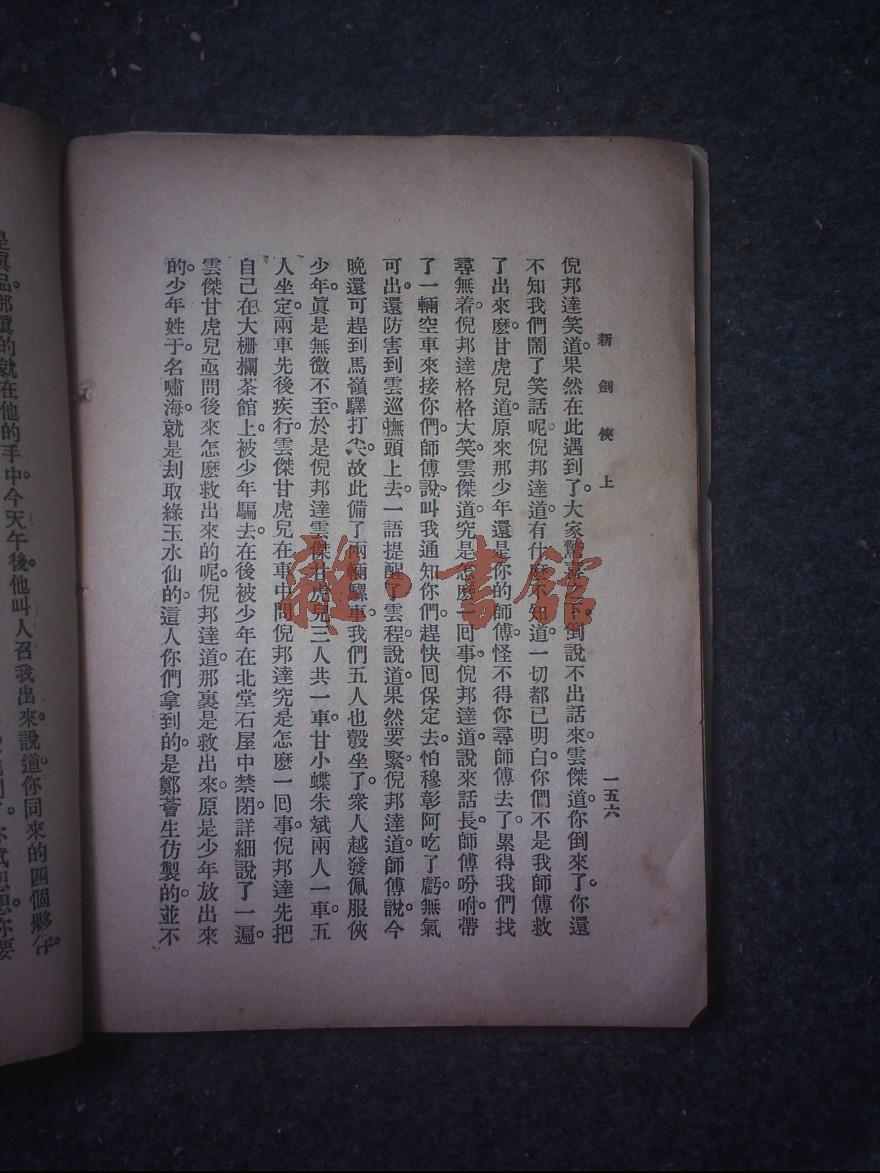 新劍俠 上
一五六
倪邦達笑道。果然在此遇到了。大家驚喜之下。倒說不出話來。雲傑道。你倒來了。你還
不知我們鬧了笑話呢。倪邦達道。有什麼不知道。一切都已明白。你們不是我師傅救
了出來麼。甘虎兒道。原來那少年還是你的師傅。怪不得你尋師傅去了。累得我們找
尋無着。倪邦達格格大笑。雲傑道。究是怎麼一回事。倪邦達道。說來話長。師傅吩咐帶
了一輛空車來接你們。師傅說。叫我通知你們。趕快回保定去。怕穆彰阿吃了虧。無氣
可出。還防害到雲巡撫頭上去。一語提醒了雲程。說道。果然要緊。倪邦達道。師傅說。今
晚還可趕到馬嶺驛打尖。故此備了兩輛騾車。我們五人也彀坐了。衆人越發佩服俠
少年。眞是無微不至。於是倪邦達雲傑甘虎兒三人共一車。甘小蝶朱斌兩人一車。五
人坐定。兩車先後疾行。雲傑甘虎兒在車中問倪邦達究是怎麼一回事。倪邦達先把
自己在大柵欄茶館上。被少年騙去。在後被少年在北堂石屋中禁閉。詳細說了一遍。
雲傑甘虎兒亟問後來怎麼救出來的呢。倪邦達道。那裏是救出來。原是少年放出來
的。少年姓于。名嘯海。就是刦取綠玉水仙的。這人你們拿到的。是鄭薈生仿製的。並不
是眞品。那眞的就在他的手中。今天午後。他叫人召我出來。說道。你同來的四個夥伴。